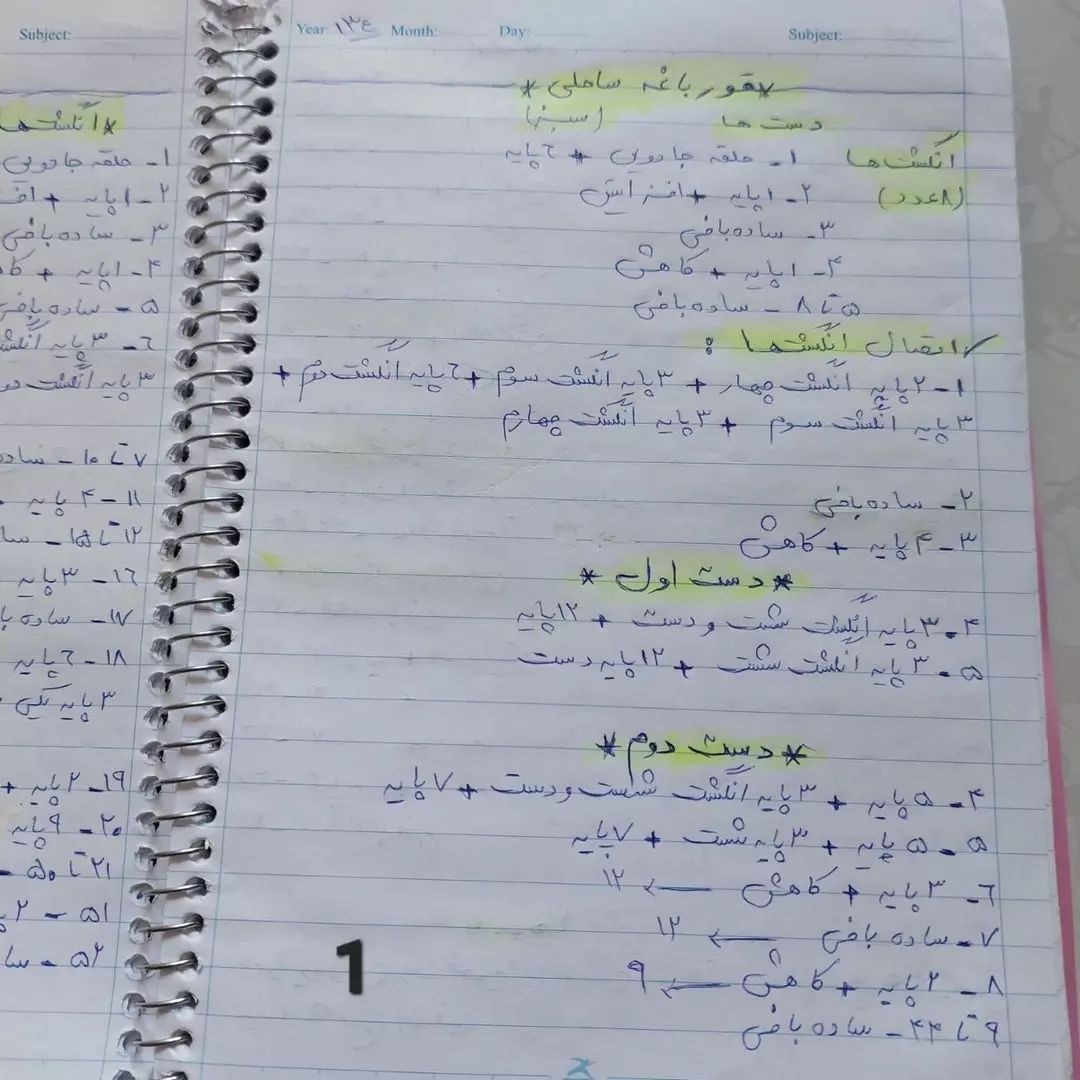 Subject:
Year: ۱۳۴ Month: Day: Subject:
*قورباغه ساحلی*
دست ها (سبز)
انگشت ها ۱- حلقه جادویی + ۶پایه
(۸عدد) ۲- ۱پایه + افزایش
۳- ساده بافی
۴- ۱پایه + کاهش
۵ تا ۸ - ساده بافی
✓اتصال انگشت ها :
۱- ۲پایه انگشت چهار + ۳پایه انگشت سوم + ۶پایه انگشت دوم +
۳پایه انگشت سوم + ۳پایه انگشت چهارم
۲- ساده بافی
۳- ۴پایه + کاهش
*دست اول*
۴- ۳پایه انگشت شست و دست + ۱۲پایه
۵- ۳پایه انگشت شست + ۱۲پایه دست
*دست دوم*
۴- ۵پایه + ۳پایه انگشت شست و دست + ۷پایه
۵- ۵پایه + ۳پایه شست + ۷پایه
۶- ۳پایه + کاهش ← ۱۲
۷- ساده بافی ← ۱۲
۸- ۲پایه + کاهش ← ۹
۹ تا ۴۴- ساده بافی
1
*انگشت ها
۱- حلقه جادویی
۲- ۱پایه +
۳- ساده بافی
۴- ۱پایه +
۵- ساده بافی
۶- ۳پایه
۳پایه انگشت
۷ تا ۱۰-
۱۱- ۴پایه
۱۲ تا ۱۵-
۱۶- ۳پایه
۱۷- ساده
۱۸- ۶پایه
۳پایه یکی
۱۹- ۲پایه +
۲۰- ۹پایه
۲۱ تا ۵۰-
۵۱- ۲
۵۲-